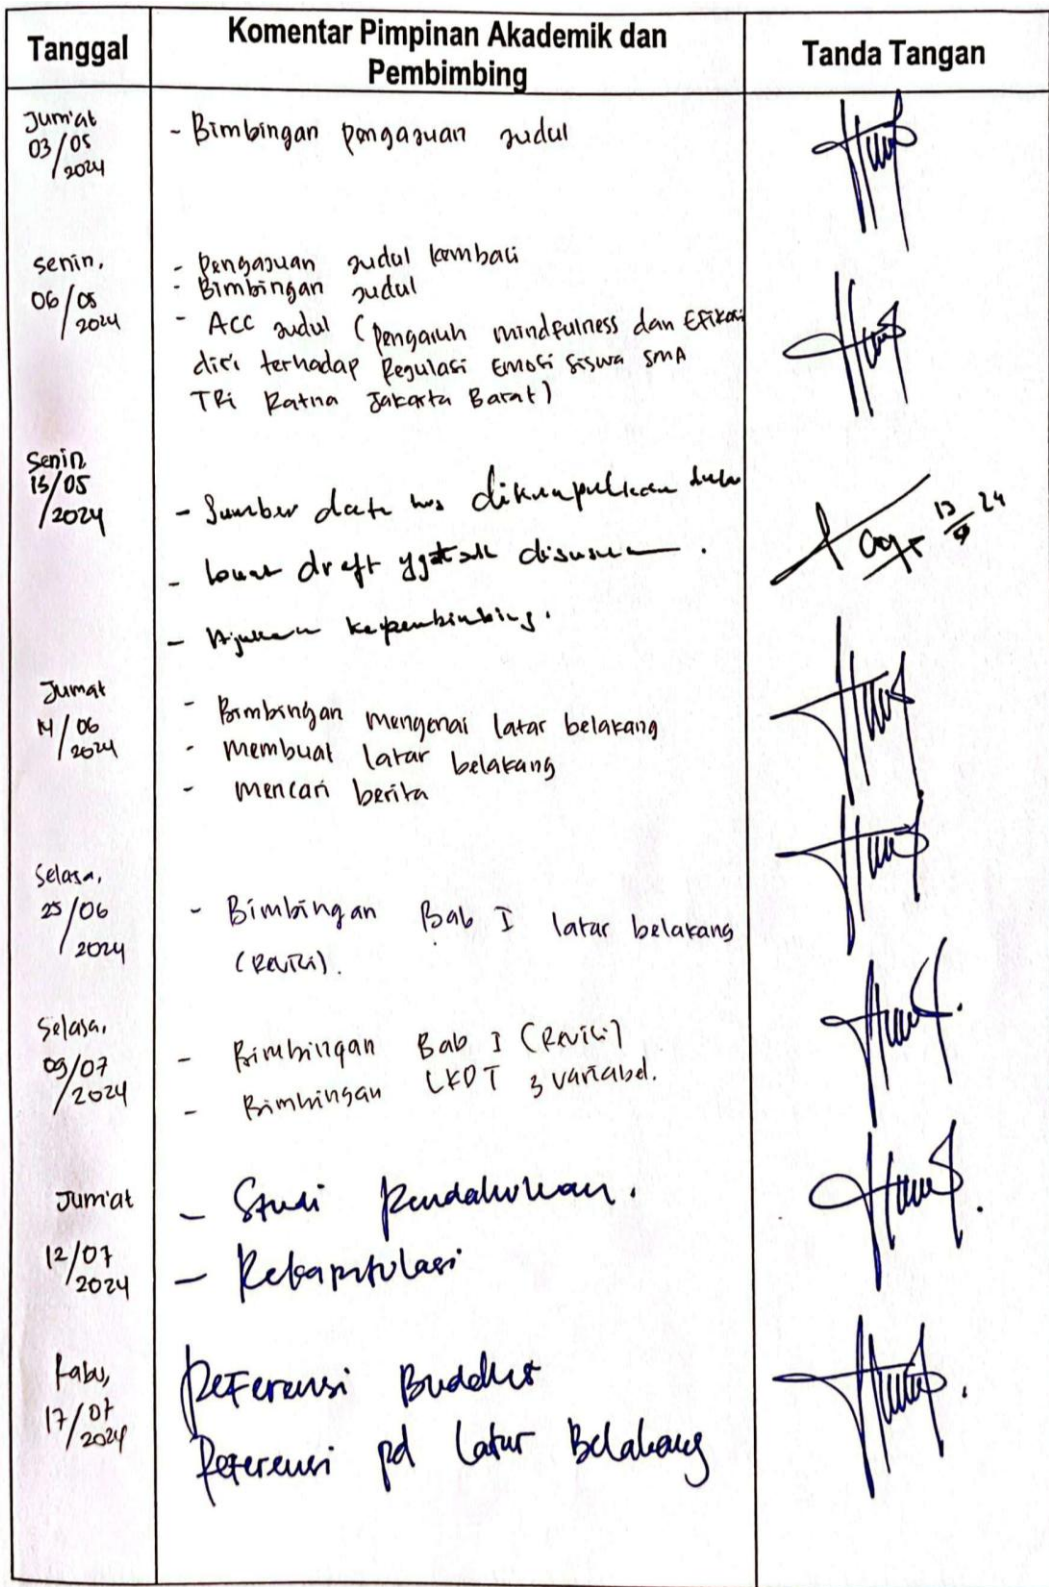 Tanggal
Komentar Pimpinan Akademik dan
Pembimbing
Tanda Tangan
Jum'at
03/05
/2024
- Bimbingan pengajuan judul
Senin,
06/05
/2024
- Pengajuan judul kembali
- Bimbingan judul
- ACC judul (Pengaruh mindfulness dan Efikasi
diri terhadap Regulasi Emosi Siswa SMA
TRi Ratna Jakarta Barat)
Senin
13/05
/2024
- Sumber data hrs dikumpulkan dulu
- buat draft yg disusun.
- Ajukan ke pembimbing.
13/5 24
Jumat
14/06
/2024
- Bimbingan mengenai latar belakang
- membuat latar belakang
- mencari berita
Selasa,
25/06
/2024
- Bimbingan Bab I latar belakang
(Revisi).
Selasa,
09/07
/2024
- Bimbingan Bab I (Revisi)
- Bimbingan LKOT 3 variabel.
Jum'at
12/07
/2024
- Studi Pendahuluan.
- Rekapitulasi
Rabu,
17/07
/2024
Referensi Buddhis
Referensi pd Latar Belakang